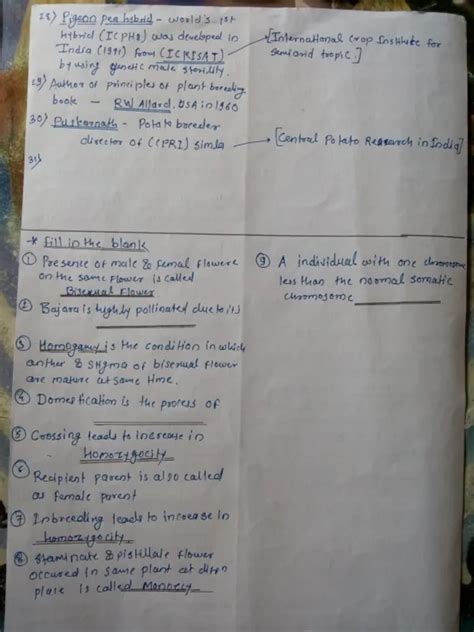 28) Pigeon pea hybrid - world's 1st
hybrid (ICPH8) was developed in
India (1991) from (ICRISAT)
by using genetic male sterility.
[International Crop Institute for
semiarid tropic.]
29) Author of principles of plant breeding
book - RW Allard, USA in 1960
30) Puskarnath - Potato breeder
director of (CPRI) Simla
[Central Potato Research in India]
31)
* fill in the blank
① Presence of male & femal flowere
on the same flower is called
Bisexual flower
② Bajara is highly pollinated due to its
③ Homogamy is the condition in which
anther & stigma of bisexual flower
are mature at same time.
④ Domestication is the process of
⑤ Crossing leads to increase in
homozygocity
⑥ Recipient parent is also called
as female parent
⑦ Inbreeding leads to increase in
homozygocity
⑧ Staminate & pistillate flower
occured in same plant at diffn
place is called Monoecy
⑨ A individual with one chromosome
less than the normal somatic
chromosome